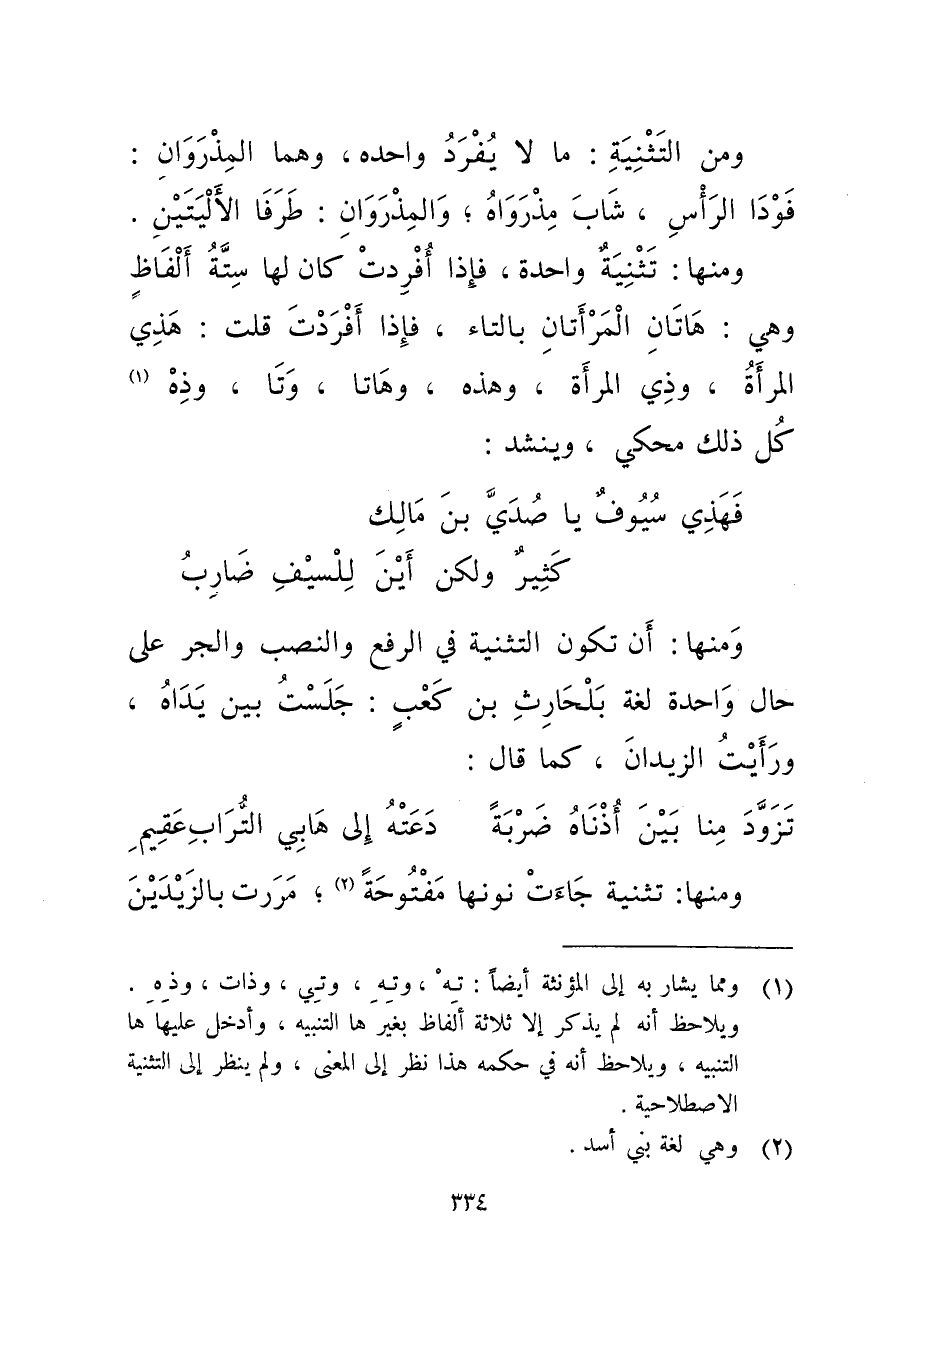 ومن التَثْنِيَةِ : ما لا يُفْرَدُ واحده ، وهما المِذْرَوَانِ :
فَوْدَا الرَأْسِ ، شَابَ مِذْرَوَاهُ ؛ وَالمِذْرَوَانِ : طَرَفَا الأَلْيَتَيْنِ .
ومنها : تَثْنِيَةٌ واحدة ، فإِذا أُفْرِدتْ كان لها سِتَّةُ أَلْفَاظٍ
وهي : هَاتَانِ الْمَرْأَتانِ بالتاء ، فإِذا أَفْرَدْتَ قلت : هَذِي
المرأَةُ ، وذِي المرأَة ، وهذه ، وهَاتا ، وَتَا ، وذِهْ (١)
كُل ذلك محكي ، وينشد :
فَهَذِي سُيُوفٌ يا صُدَيَّ بنَ مَالِك
كَثِيرٌ ولكن أَيْنَ لِلْسيْفِ ضَارِبُ
وَمنها : أَن تكون التثنية في الرفع والنصب والجر على
حال وَاحدة لغة بَلْحَارِثِ بن كَعْبٍ : جَلَسْتُ بين يَدَاهُ ،
ورَأَيْتُ الزيدانَ ، كما قال :
تَزَوَّدَ مِنا بَيْنَ أُذْنَاهُ ضَرْبَةً دَعَتْهُ إِلى هَابِي التُّرَابِ عَقِيمِ
ومنها: تثنية جَاءَتْ نونها مَفْتُوحَةً (٢) ؛ مَرَرت بالزَيْدَيْنَ
(١) ومما يشار به إلى المؤنثة أيضاً : تِهْ ، وتِهِ ، وتِي ، وذات ، وذِهِ .
ويلاحظ أنه لم يذكر إلا ثلاثة ألفاظ بغير ها التنبيه ، وأدخل عليها ها
التنبيه ، ويلاحظ أنه في حكمه هذا نظر إلى المعنى ، ولم ينظر إلى التثنية
الاصطلاحية .
(٢) وهي لغة بني أسد .
٣٣٤